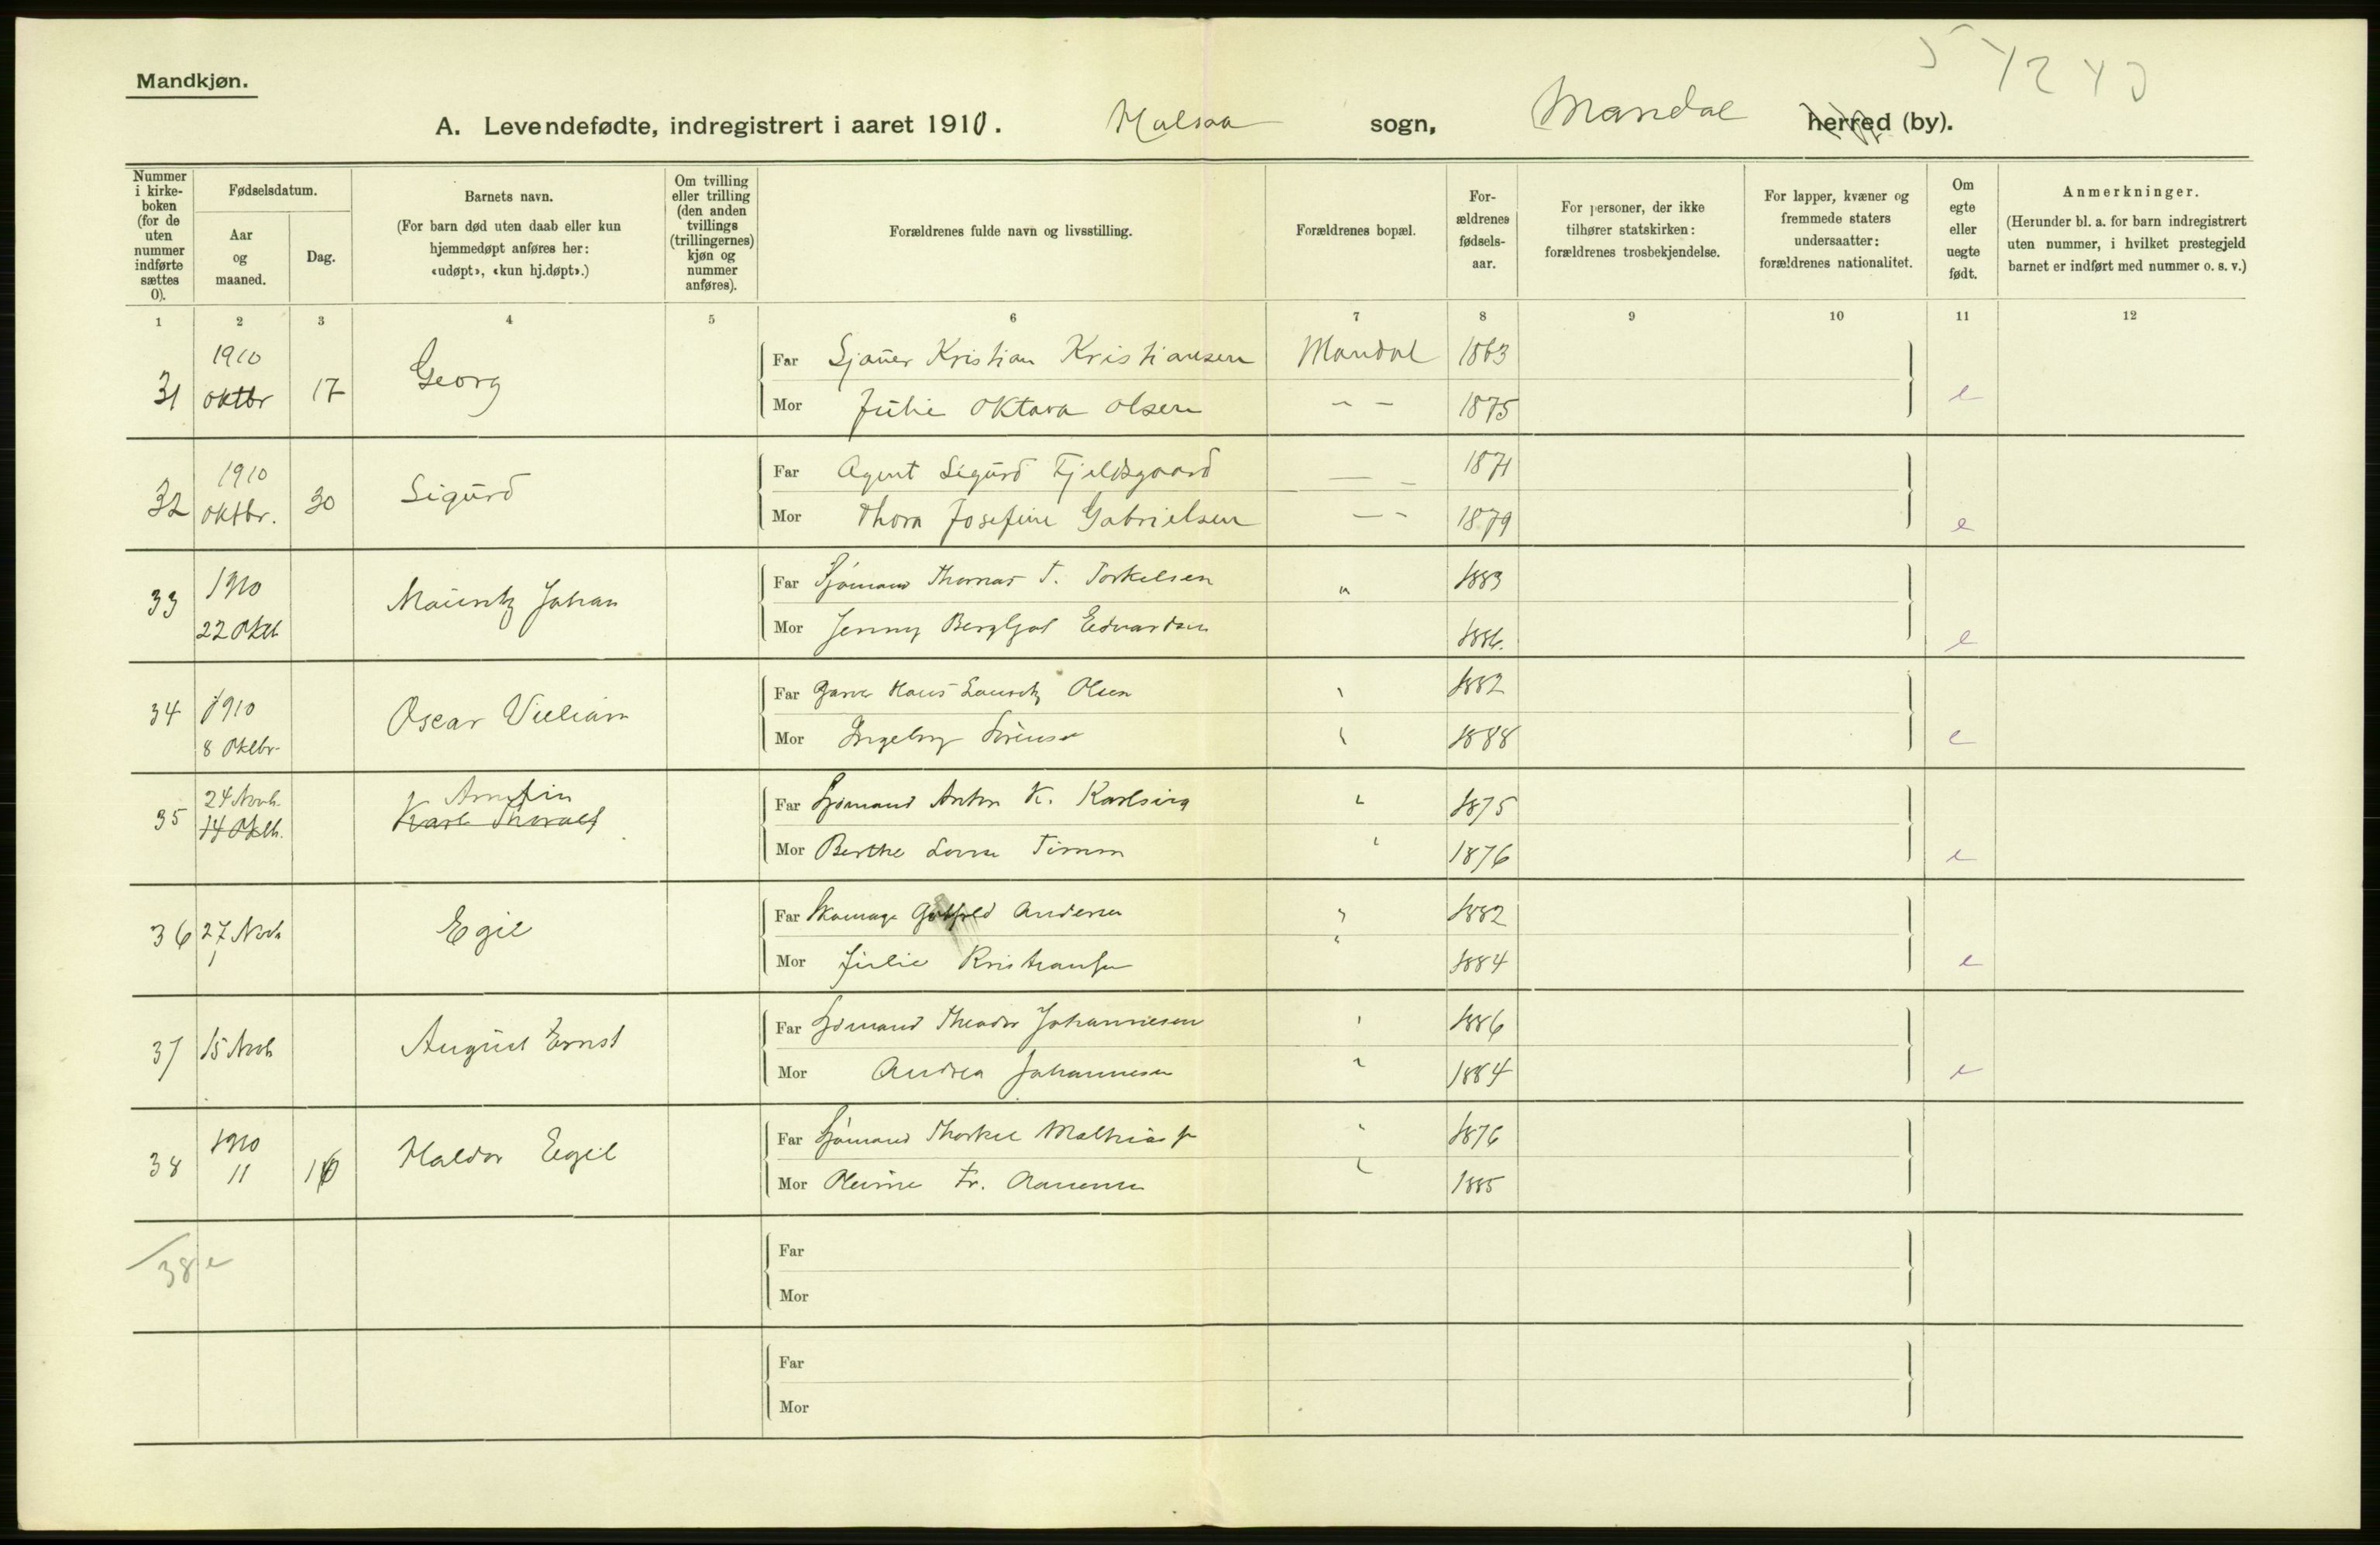 5 4243
Mandkjøn.
A. Levendefødte, indregistrert i aaret 1910. Halsaa sogn, Mandal herred (by).
Nummer i kirkeboken (for de uten nummer indførte sættes 0).
Fødselsdatum.
Aar og maaned.
Dag.
Barnets navn.
(For barn død uten daab eller kun hjemmedøpt anføres her: «udøpt», «kun hj.døpt».)
Om tvilling eller trilling (den anden tvillings (trillingernes) kjøn og nummer anføres).
Forældrenes fulde navn og livsstilling.
Forældrenes bopæl.
For-ældrenes fødsels-aar.
For personer, der ikke tilhører statskirken: forældrenes trosbekjendelse.
For lapper, kvæner og fremmede staters undersaatter: forældrenes nationalitet.
Om egte eller uegte født.
Anmerkninger.
(Herunder bl. a. for barn indregistrert uten nummer, i hvilket prestegjeld barnet er indført med nummer o. s. v.)
1 2 3 4 5 6 7 8 9 10 11 12
31 1910 oktbr 17 Georg Far Sjauer Kristian Kristiansen Mandal 1863
Mor Julie Oktava Olsen — — 1875 e
32 1910 oktbr. 30 Sigurd Far Agent Sigurd Fjeldsgaard — — 1871
Mor Thora Josefine Gabrielsen — — 1879 e
33 1910 22 Oktb Mauritz Johan Far Sjømand Thomas T. Torkelsen " 1883
Mor Jenny Bergljot Edvardsen 1886. e
34 1910 8 Oktbr Oscar William Far Garver Hans Lauritz Olsen " 1882
Mor Ingeborg Sørensen " 1888 e
35 24 Novb. 14 Oktb. Arnfin Karl Thoralf Far Sjømand Anton K. Karlsen " 1875
Mor Berthe Timm " 1876 e
36 27 Novb Egil Far Skomager Andersen " 1882
Mor Julie Kristiansen " 1884 e
37 15 Novb August Ernst Far Sjømand Theodor Johannesen " 1886
Mor Andrea Johannesen " 1884 e
38 1910 11 16 Haldor Egil Far Sjømand Thorkel Mathias " 1876
Mor Fr. " 1885
38 e Far
Mor
Far
Mor